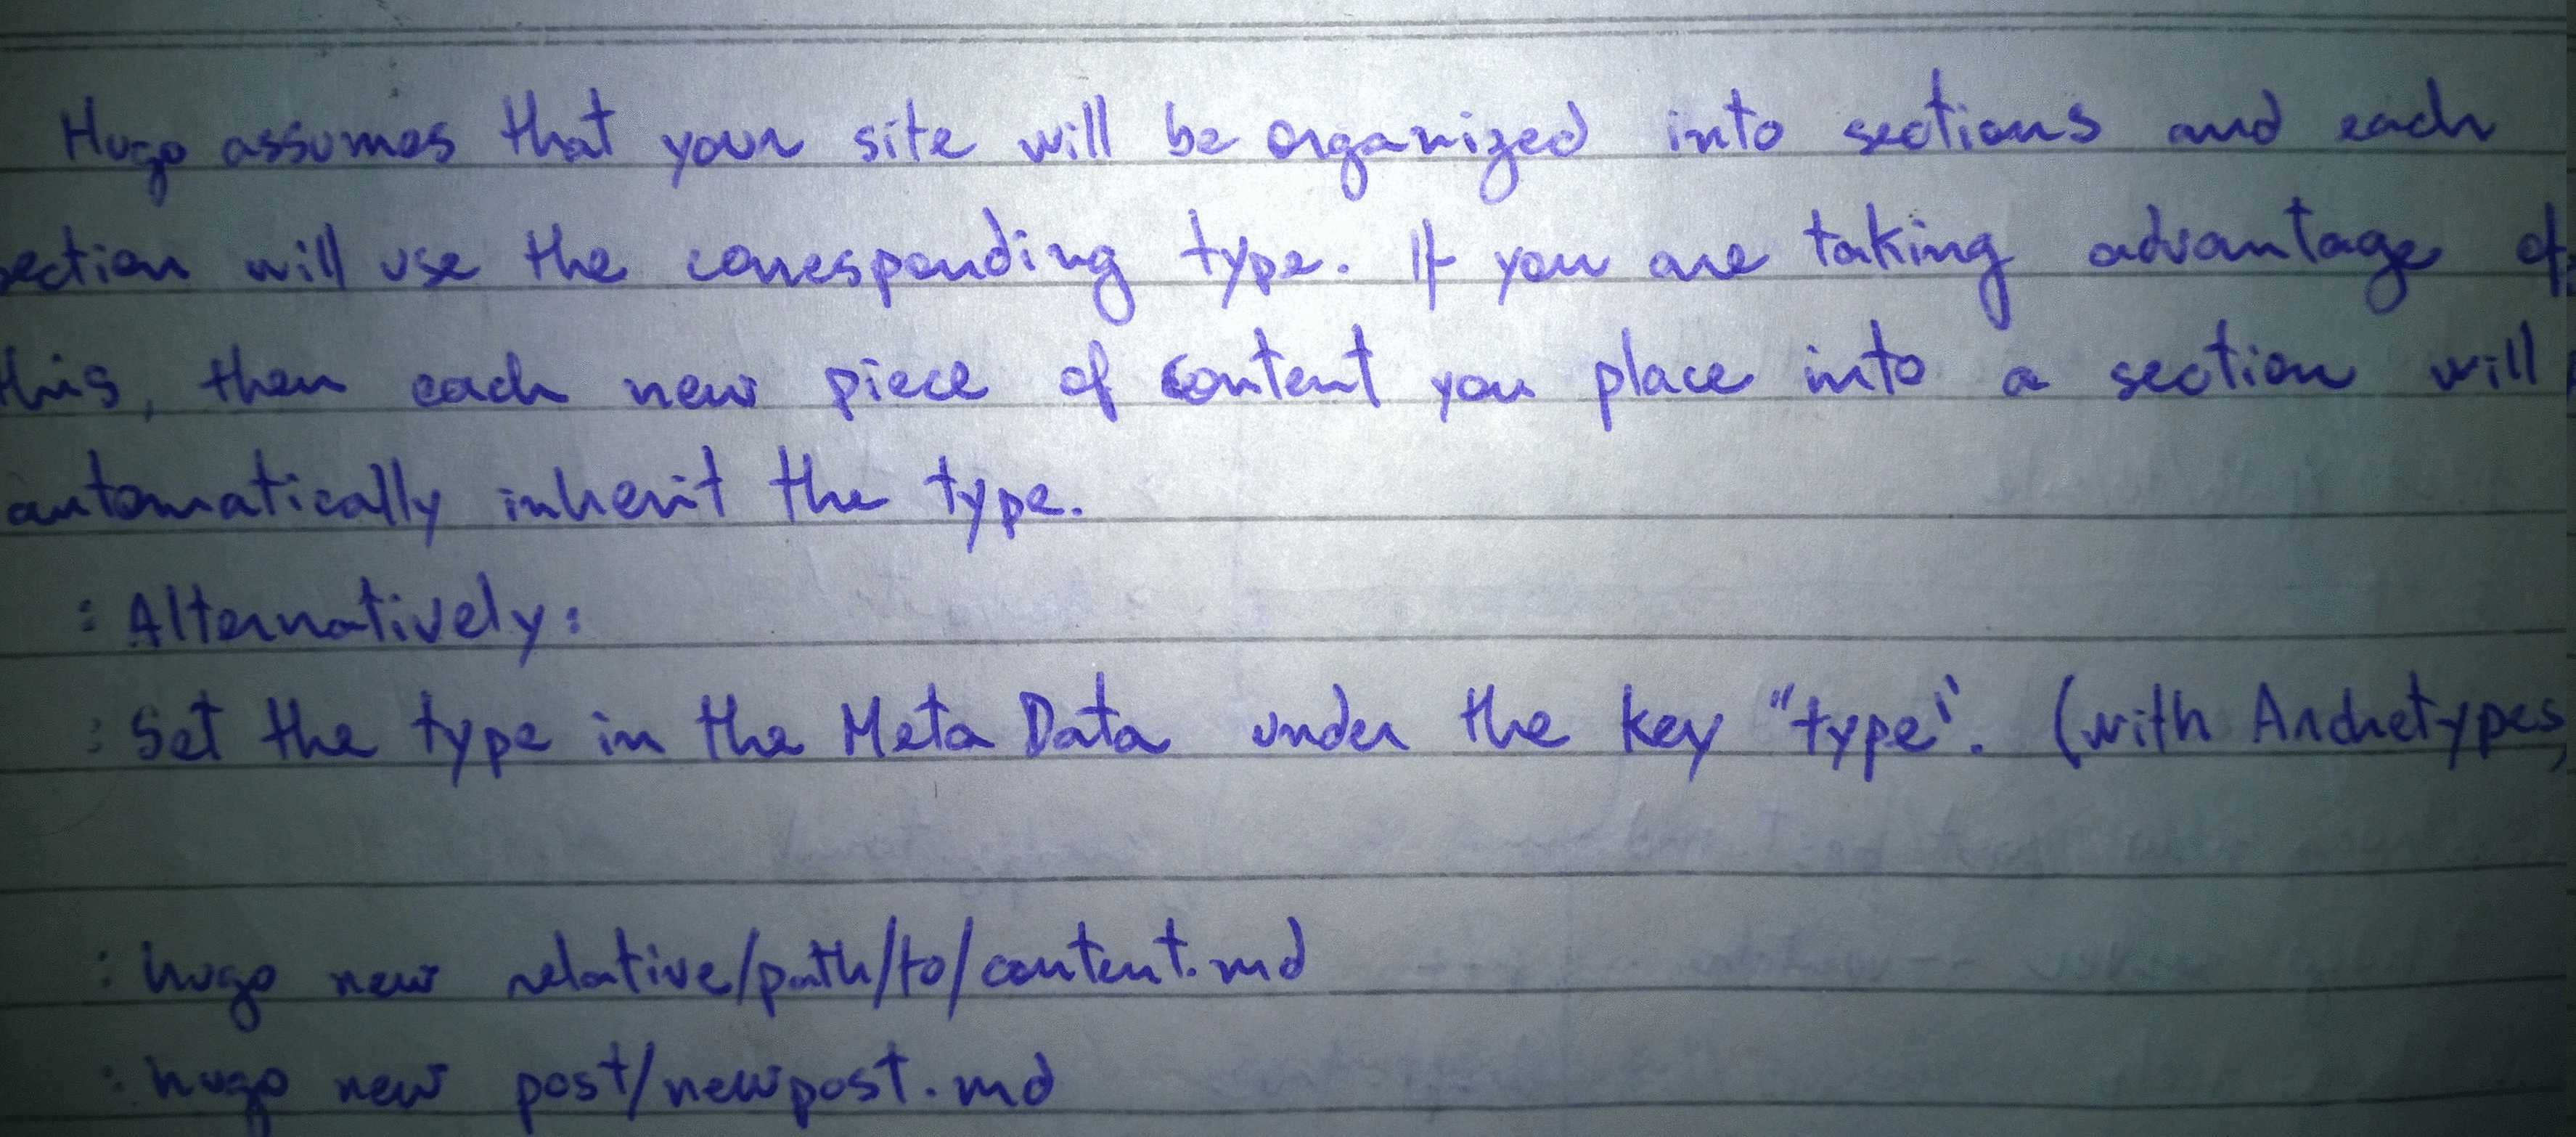 Hugo assumes that your site will be organized into sections and each
section will use the corresponding type. If you are taking advantage of
this, then each new piece of content you place into a section will
automatically inherit the type.
: Alternatively:
: Set the type in the Meta Data under the key "type". (with Archetypes,
: hugo new relative/path/to/content.md
: hugo new post/newpost.md